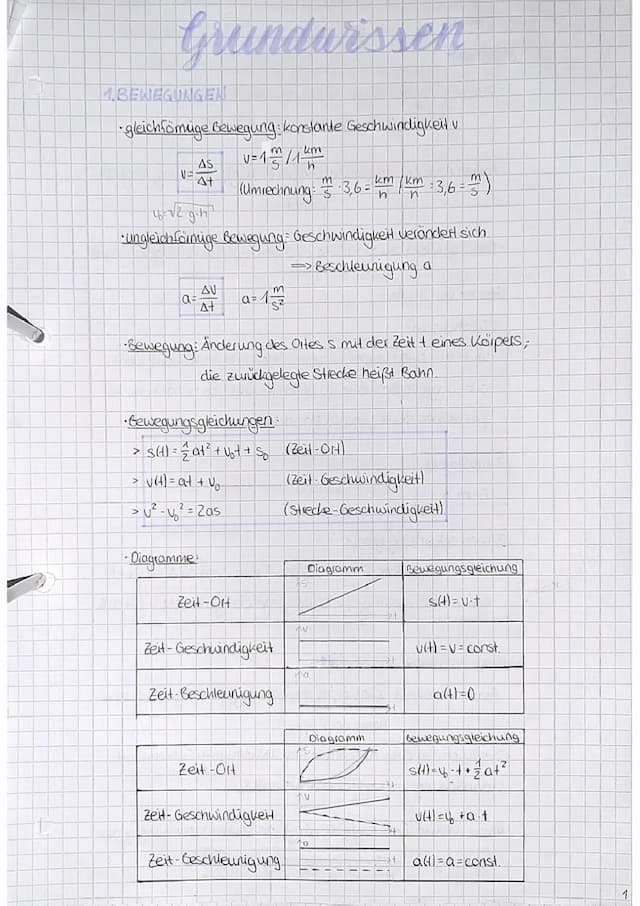 Grundwissen
1. BEWEGUNGEN
· gleichförmige Bewegung: konstante Geschwindigkeit v
v = Δs/Δt v = 1 m/s / 1 km/h
(Umrechnung: m/s · 3,6 = km/h / km/h : 3,6 = m/s)
v₀ = √2·g·h
· ungleichförmige Bewegung: Geschwindigkeit verändert sich
⇒ Beschleunigung a
a = Δv/Δt a = 1 m/s²
· Bewegung: Änderung des Ortes s mit der Zeit t eines Körpers;
die zurückgelegte Strecke heißt Bahn.
· Bewegungsgleichungen:
> s(t) = 1/2 at² + v₀t + s₀ (Zeit-Ort)
> v(t) = at + v₀ (Zeit-Geschwindigkeit)
> v² - v₀² = 2as (Strecke-Geschwindigkeit)
· Diagramme:
Diagramm Bewegungsgleichung
Zeit-Ort s t s(t) = v·t
Zeit-Geschwindigkeit v v(t) = v = const.
Zeit-Beschleunigung a t a(t) = 0
Diagramm Bewegungsgleichung
Zeit-Ort s t s(t) = v₀·t + 1/2 at²
Zeit-Geschwindigkeit v t v(t) = v₀ + a·t
Zeit-Beschleunigung a t a(t) = a = const.
1